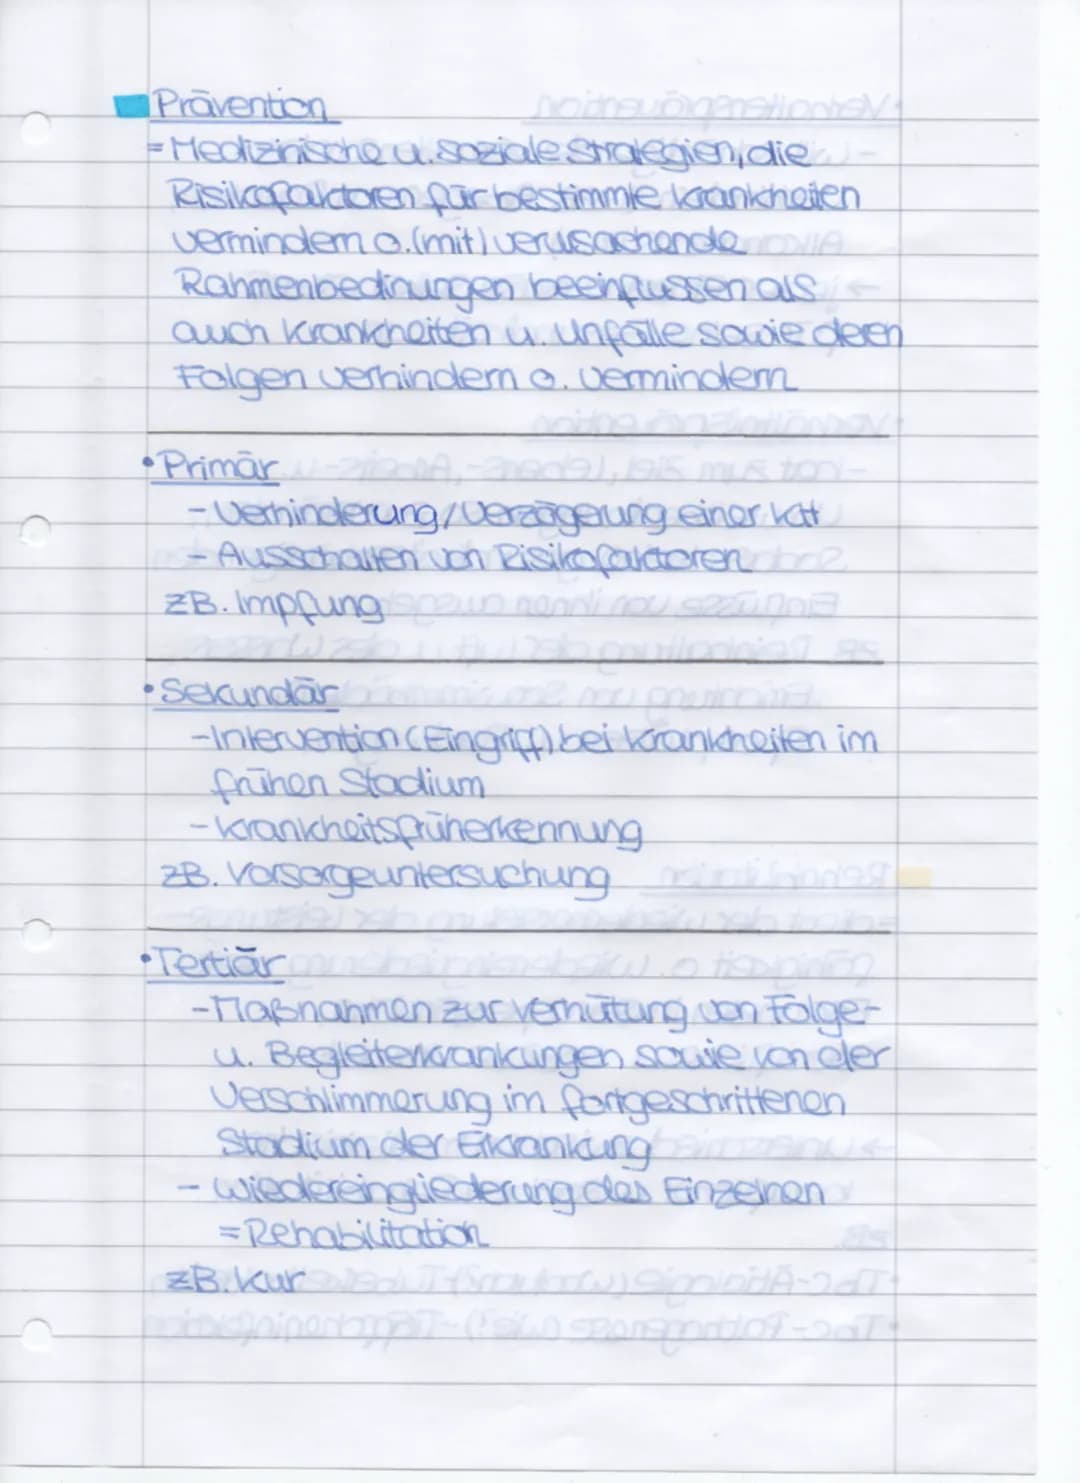 Prävention
= Medizinische u. soziale Strategien, die
Risikofaktoren für bestimmte Krankheiten
vermindern o. (mit) verusachende
Rahmenbedinungen beeinflussen als
auch Krankheiten u. Unfälle sowie deren
Folgen verhindern o. vermindern
• Primär
- Verhinderung/Verzögerung einer Kht
- Ausschalten von Risikofaktoren
zB. Impfung
• Sekundär
- Intervention (Eingriff) bei Krankheiten im
frühen Stadium
- Krankheitsfrüherkennung
zB. Vorsorgeuntersuchung
• Tertiär
- Maßnahmen zur Verhütung von Folge-
u. Begleiterkrankungen sowie von der
Verschlimmerung im fortgeschrittenen
Stadium der Erkrankung
- Wiedereingliederung des Einzelnen
= Rehabilitation
zB. Kur